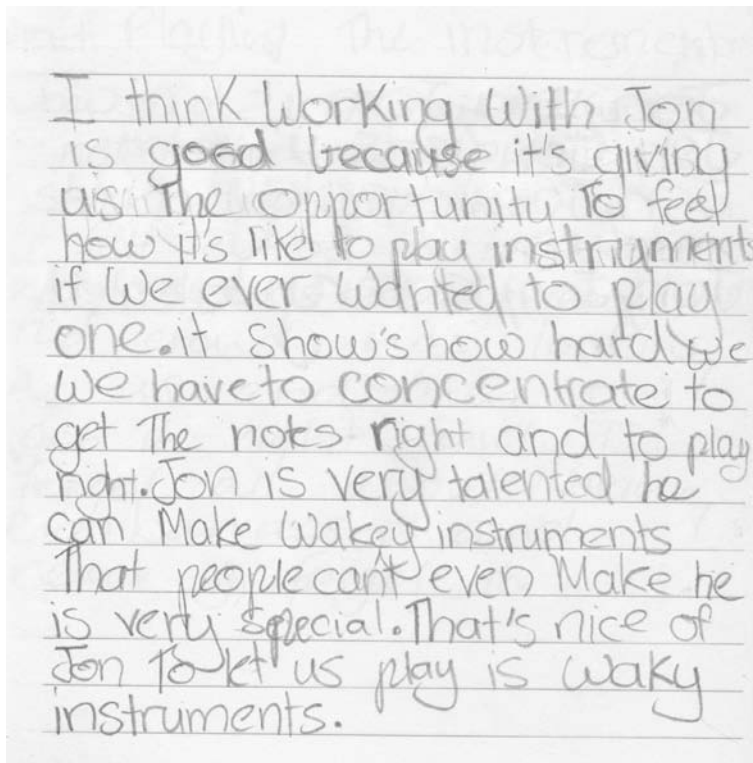 I think Working With Jon
is good because it's giving
us The opportunity To feel
how it's like to play instruments
if we ever wanted to play
one. it show's how hard we
we have to concentrate to
get The notes right and to play
right. Jon is very talented he
can Make Wakey instruments
That people can't even Make he
is very special. That's nice of
Jon To let us play is waky
instruments.